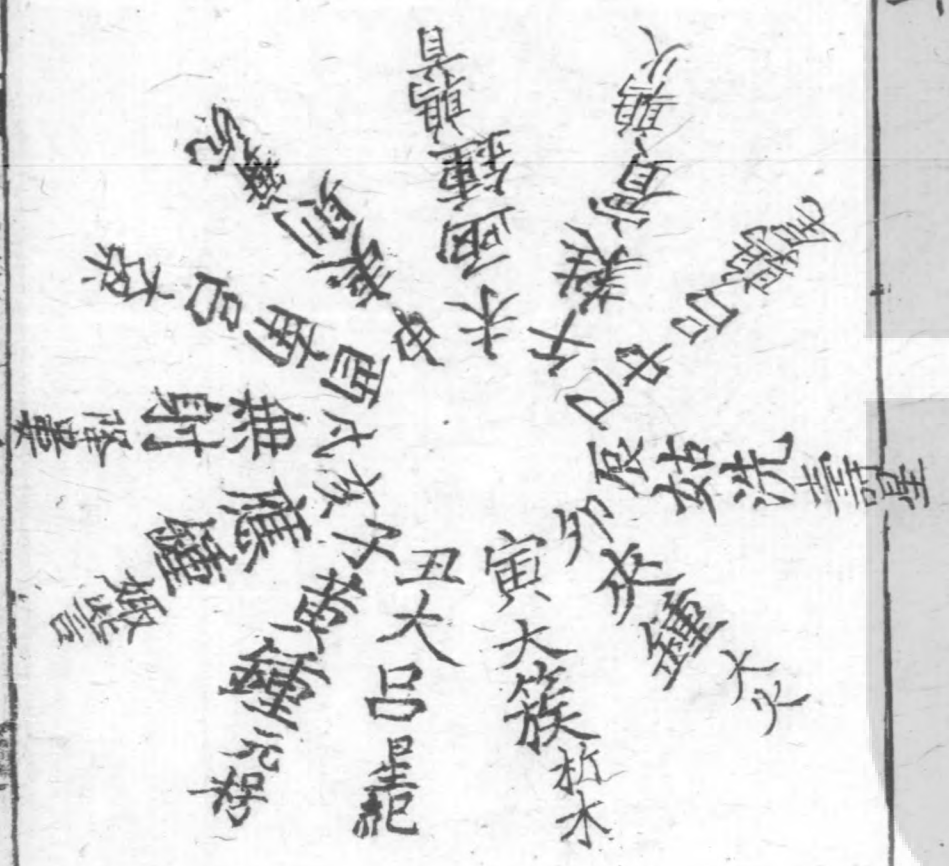 子黃鍾元枵
丑大呂星紀
寅大簇析木
卯夾鍾大火
辰姑洗壽星
巳中呂鶉尾
午蕤賓鶉火
未函鍾鶉首
申夷則實沈
酉南呂大梁
戌無射降婁
亥應鍾娵訾